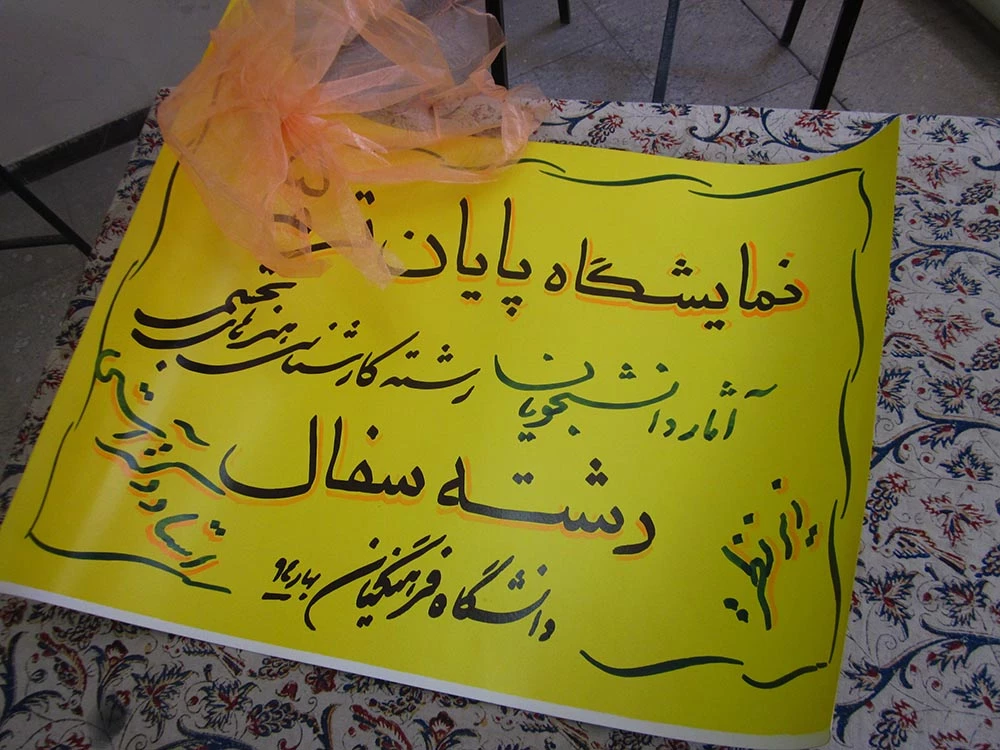 نمایشگاه پایان
آثار دانشجویان رشته کارشناسی هنرهای تجسمی
رشته سفال
زیر نظر
استاد
دانشگاه فرهنگیان بهار ۹۴